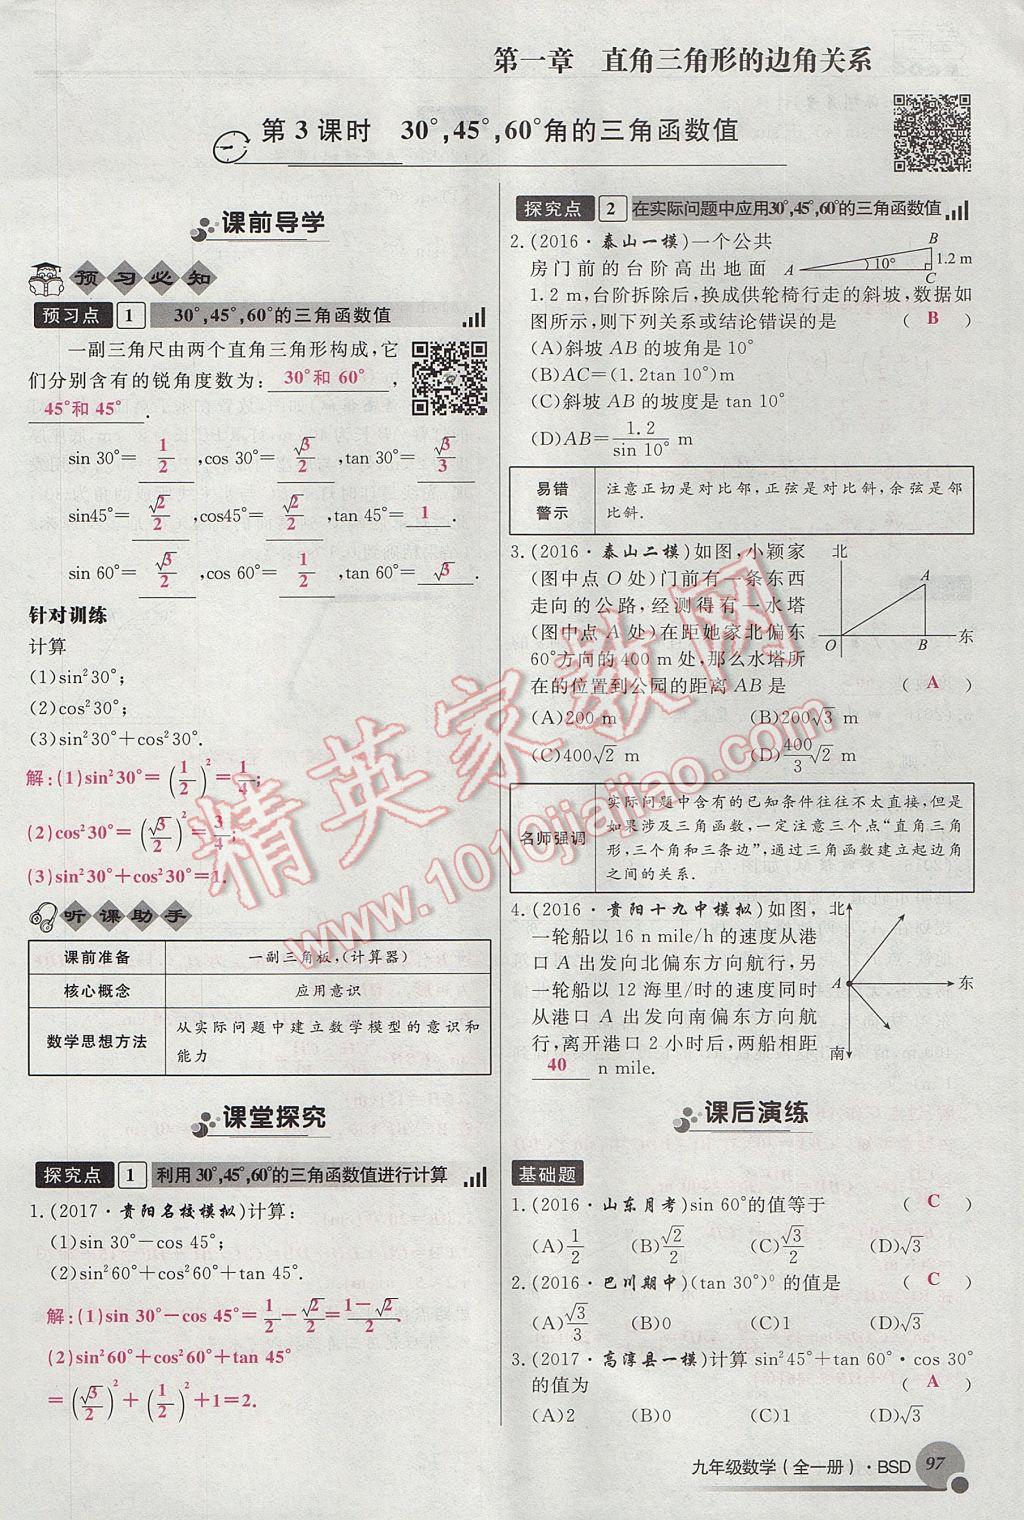 第一章 直角三角形的边角关系
第 3 课时 30°,45°,60°角的三角函数值
课前导学
预习必知
预习点 1 30°,45°,60°的三角函数值
一副三角尺由两个直角三角形构成,它
们分别含有的锐角度数为: 30°和 60° ,
45°和 45° .
sin 30°= 1/2 ,cos 30°= √3/2 ,tan 30°= √3/3
sin45°= √2/2 ,cos45°= √2/2 ,tan 45°= 1 .
sin 60°= √3/2 ,cos 60°= 1/2 ,tan 60°= √3 .
针对训练
计算
(1)sin²30°;
(2)cos²30°;
(3)sin²30°+cos²30°.
解:(1)sin²30°=(1/2)²=1/4;
(2)cos²30°=(√3/2)²=3/4;
(3)sin²30°+cos²30°=1.
听课助手
课前准备 一副三角板,(计算器)
核心概念 应用意识
数学思想方法 从实际问题中建立数学模型的意识和
能力
课堂探究
探究点 1 利用 30°,45°,60°的三角函数值进行计算
1.(2017·贵阳名校模拟)计算:
(1)sin 30°-cos 45°;
(2)sin²60°+cos²60°+tan 45°.
解:(1)sin 30°-cos 45°=1/2-√2/2=(1-√2)/2.
(2)sin²60°+cos²60°+tan 45°
=(√3/2)²+(1/2)²+1=2.
探究点 2 在实际问题中应用30°,45°,60°的三角函数值
2.(2016·泰山一模)一个公共
房门前的台阶高出地面
1.2 m,台阶拆除后,换成供轮椅行走的斜坡,数据如
图所示,则下列关系或结论错误的是 ( B )
A 10° B C 1.2 m
(A)斜坡 AB 的坡角是 10°
(B)AC=(1.2tan 10°)m
(C)斜坡 AB 的坡度是 tan 10°
(D)AB=1.2/sin 10° m
易错
警示
注意正切是对比邻,正弦是对比斜,余弦是邻
比斜.
3.(2016·泰山二模)如图,小颖家
(图中点 O 处)门前有一条东西
走向的公路,经测得有一水塔
(图中点 A 处)在距她家北偏东
60°方向的 400 m 处,那么水塔所
在的位置到公园的距离 AB 是 ( A )
北 A O B 东
(A)200 m (B)200√3 m
(C)400√2 m (D)400/3 √2 m
名师强调
实际问题中含有的已知条件往往不太直接,但是
如果涉及三角函数,一定注意三个点“直角三角
形,三个角和三条边”,通过三角函数建立起边角
之间的关系.
4.(2016·贵阳十九中模拟)如图,
一轮船以 16 n mile/h 的速度从港
口 A 出发向北偏东方向航行,另
一轮船以 12 海里/时的速度同时
从港口 A 出发向南偏东方向航
行,离开港口 2 小时后,两船相距
40 n mile.
北 A 东 南
课后演练
基础题
1.(2016·山东月考)sin 60°的值等于 ( C )
(A)1/2 (B)√2/2 (C)√3/2 (D)√3
2.(2016·巴川期中)(tan 30°)⁰ 的值是 ( C )
(A)√3/3 (B)0 (C)1 (D)√3
3.(2017·高淳县一模)计算 sin²45°+tan 60°·cos 30°
的值为 ( A )
(A)2 (B)0 (C)1 (D)√3
九年级数学(全一册)·BSD 97
精英家教网
www.1010jiajiao.com